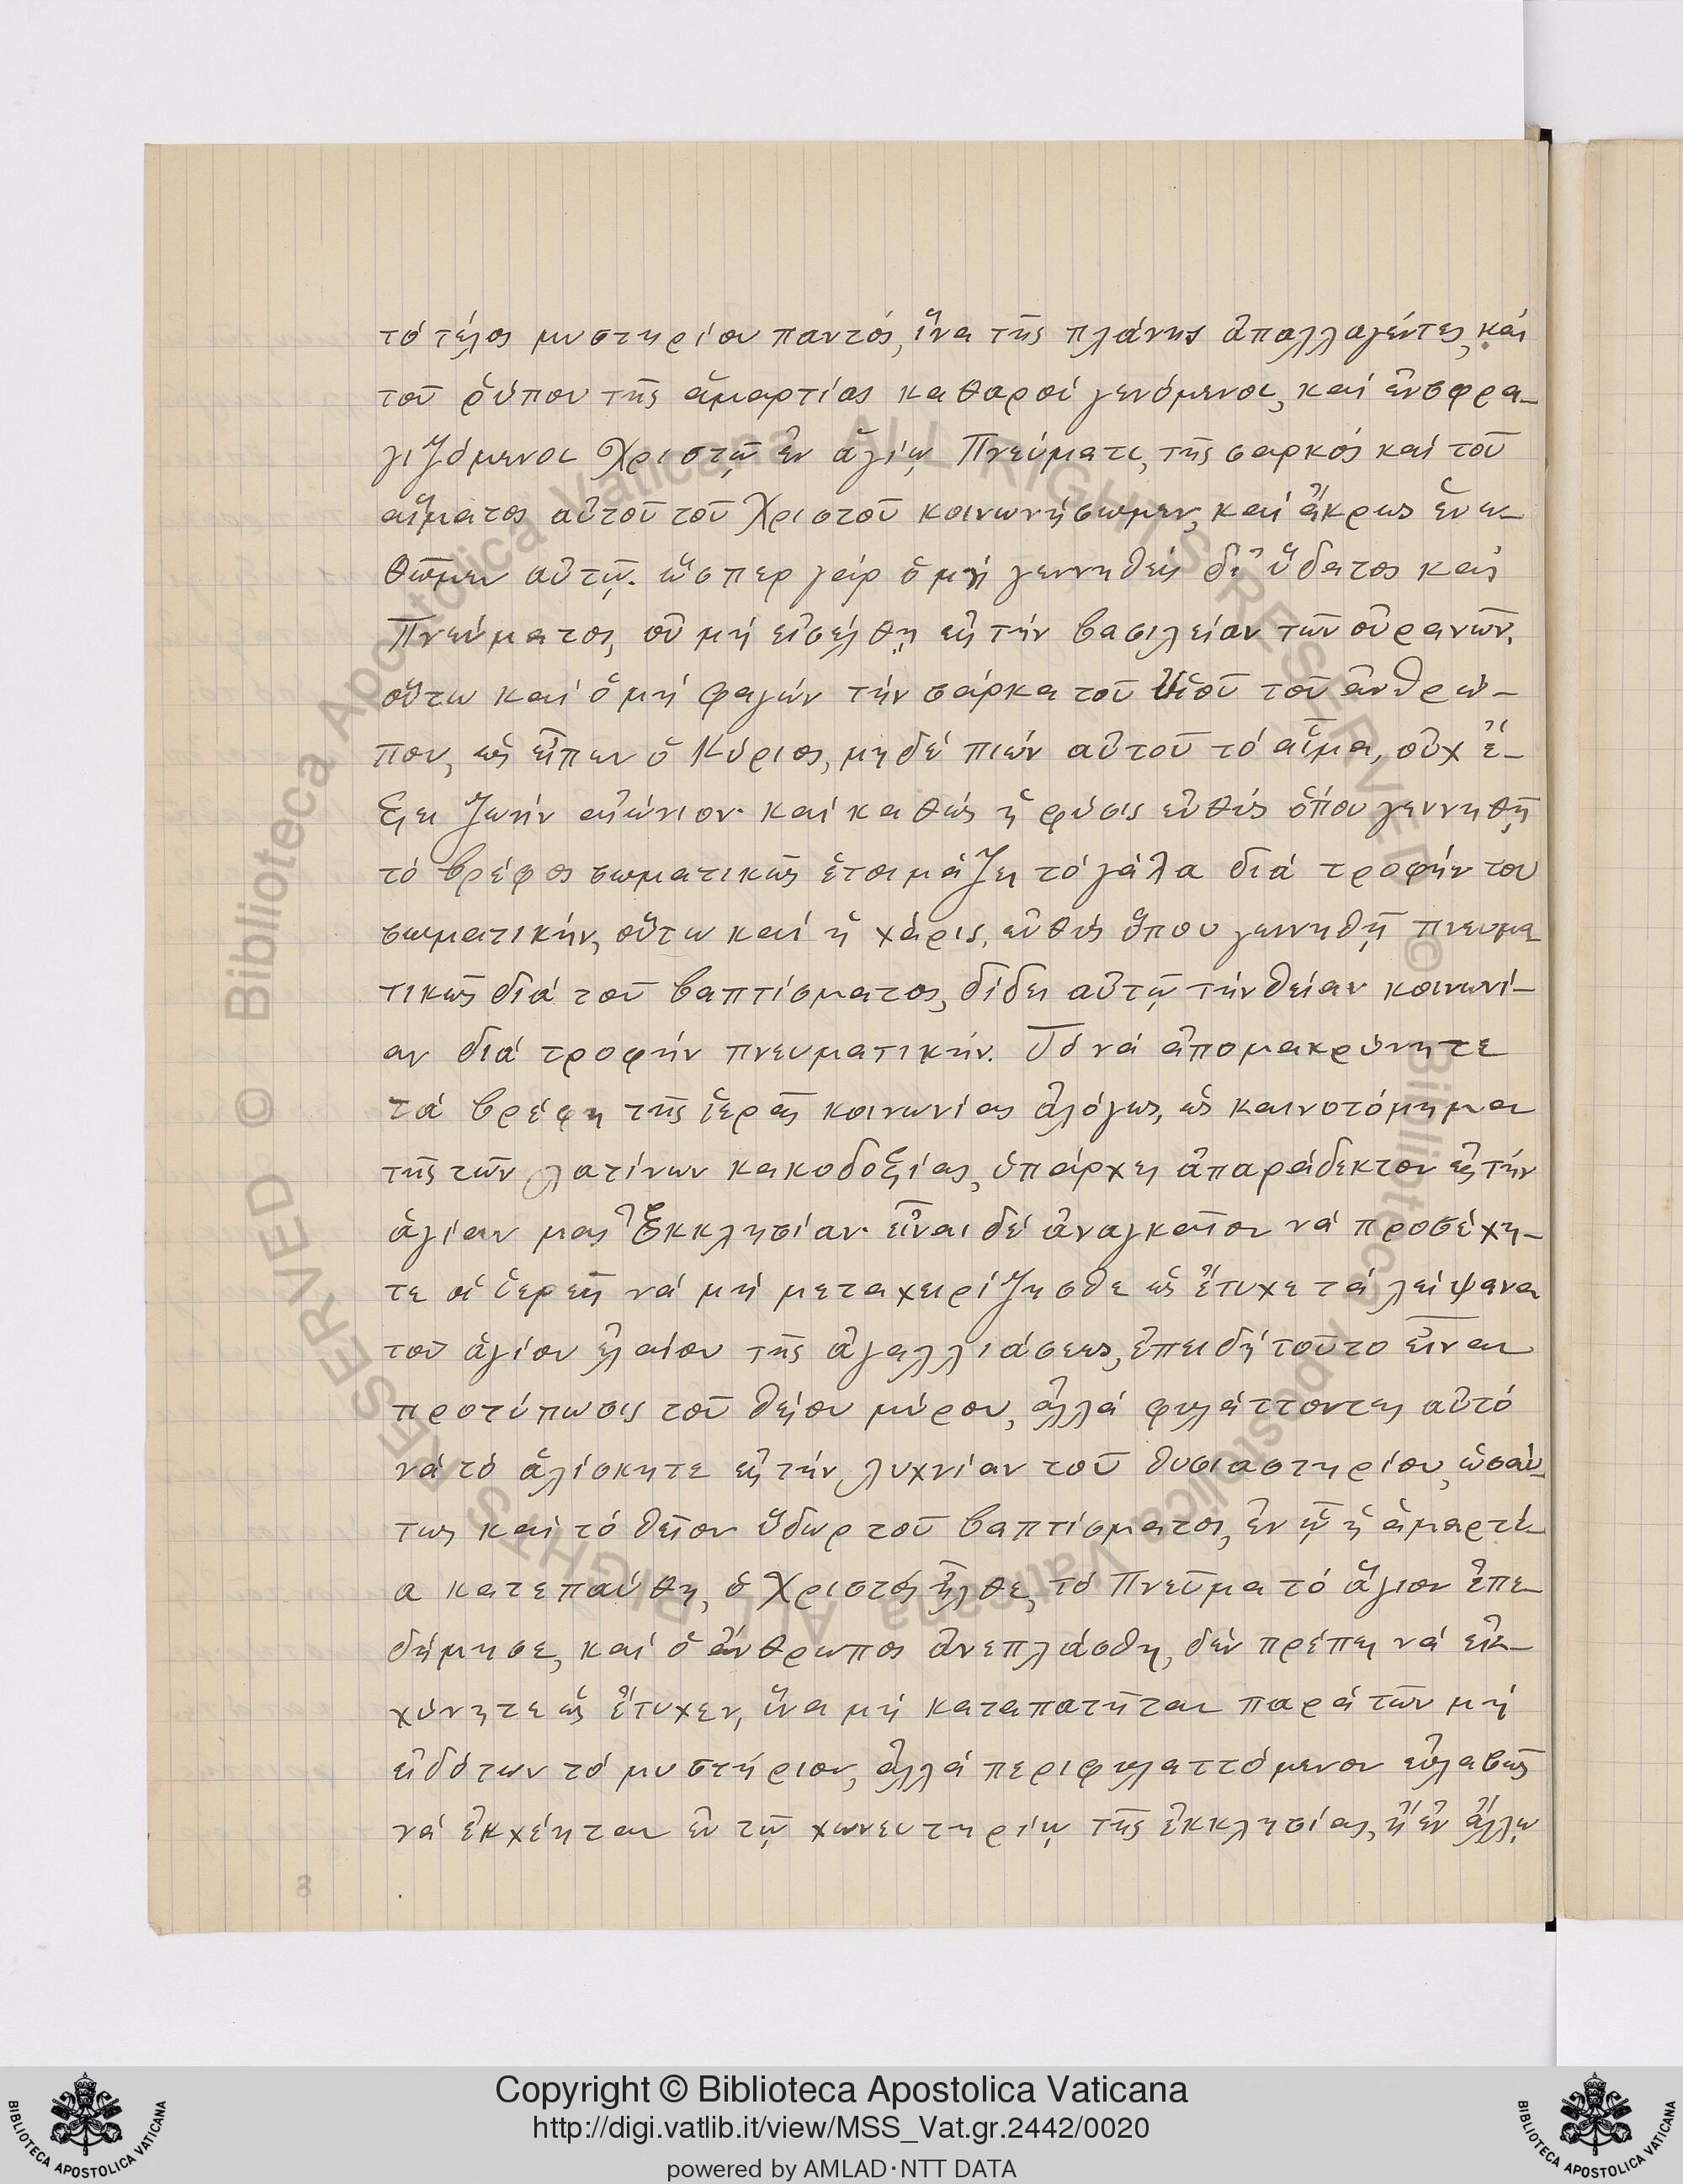 τό τέλος μυστηρίου παντός, ἵνα τῆς πλάνης ἀπαλλαγέντες, καί
τοῦ ῥύπου τῆς ἁμαρτίας καθαροί γενόμενοι, καί ἐνσφρα-
γιζόμενοι Χριστῷ ἐν ἁγίῳ Πνεύματι, τῆς σαρκός καί τοῦ
αἵματος αὐτοῦ τοῦ Χριστοῦ κοινωνήσωμεν, καί ἄκρως ἑνω-
θῶμεν αὐτῷ. ὥσπερ γάρ ὁ μή γεννηθείς δι' ὕδατος καί
Πνεύματος, οὐ μή εἰσέλθῃ εἰς τήν βασιλείαν τῶν οὐρανῶν,
οὕτω καί ὁ μή φαγών τήν σάρκα τοῦ Υἱοῦ τοῦ ἀνθρώ-
που, ὡς εἶπεν ὁ Κύριος, μηδέ πιών αὐτοῦ τό αἷμα, οὐχ ἕ-
ξει ζωήν αἰώνιον· καί καθώς ἡ φύσις εὐθύς ὁποῦ γεννηθῇ
τό βρέφος σωματικῶς ἑτοιμάζει τό γάλα διά τροφήν του
σωματικήν, οὕτω καί ἡ χάρις, εὐθύς ὅπου γεννηθῇ πνευμα-
τικῶς διά τοῦ βαπτίσματος, δίδει αὐτῷ τήν θείαν κοινωνί-
αν διά τροφήν πνευματικήν. Τό νά ἀπομακρύνητε
τά βρέφη τῆς ἱερᾶς κοινωνίας ἀλόγως, ὡς καινοτόμημα
τῆς τῶν λατίνων κακοδοξίας, ὑπάρχει ἀπαράδεκτον εἰς τήν
ἁγίαν μας Ἐκκλησίαν· εἶναι δέ ἀναγκαῖον νά προσέχη-
τε οἱ ἱερεῖς νά μή μεταχειρίζησθε ὡς ἔτυχε τά λείψανα
τοῦ ἁγίου ἐλαίου τῆς ἀγαλλιάσεως, ἐπειδή τοῦτο εἶναι
προτύπωσις τοῦ θείου μύρου, ἀλλά φυλάττοντες αὐτό
νά τό ἁλίσκητε εἰς τήν λυχνίαν τοῦ θυσιαστηρίου, ὡσαύ-
τως καί τό θεῖον ὕδωρ τοῦ βαπτίσματος, ἐν ᾧ ἡ ἁμαρτί-
α κατεπαύθη, ὁ Χριστός ἦλθε, τό Πνεῦμα τό ἅγιον ἐπε-
δήμησε, καί ὁ ἄνθρωπος ἀνεπλάσθη, δέν πρέπει νά ἐκ-
χύνητε ὡς ἔτυχεν, ἵνα μή καταπατῆται παρά τῶν μή
εἰδότων τό μυστήριον, ἀλλά περιφυλαττόμενον εὐλαβῶς
νά ἐκχέηται ἐν τῷ χωνευτηρίῳ τῆς ἐκκλησίας, ἤ ἐν ἄλλῳ
8
Copyright © Biblioteca Apostolica Vaticana
http://digi.vatlib.it/view/MSS_Vat.gr.2442/0020
powered by AMLAD·NTT DATA
BIBLIOTECA APOSTOLICA VATICANA
BIBLIOTECA APOSTOLICA VATICANA
© Biblioteca Apostolica Vaticana ALL RIGHTS RESERVED
© Biblioteca Apostolica Vaticana ALL RIGHTS RESERVED